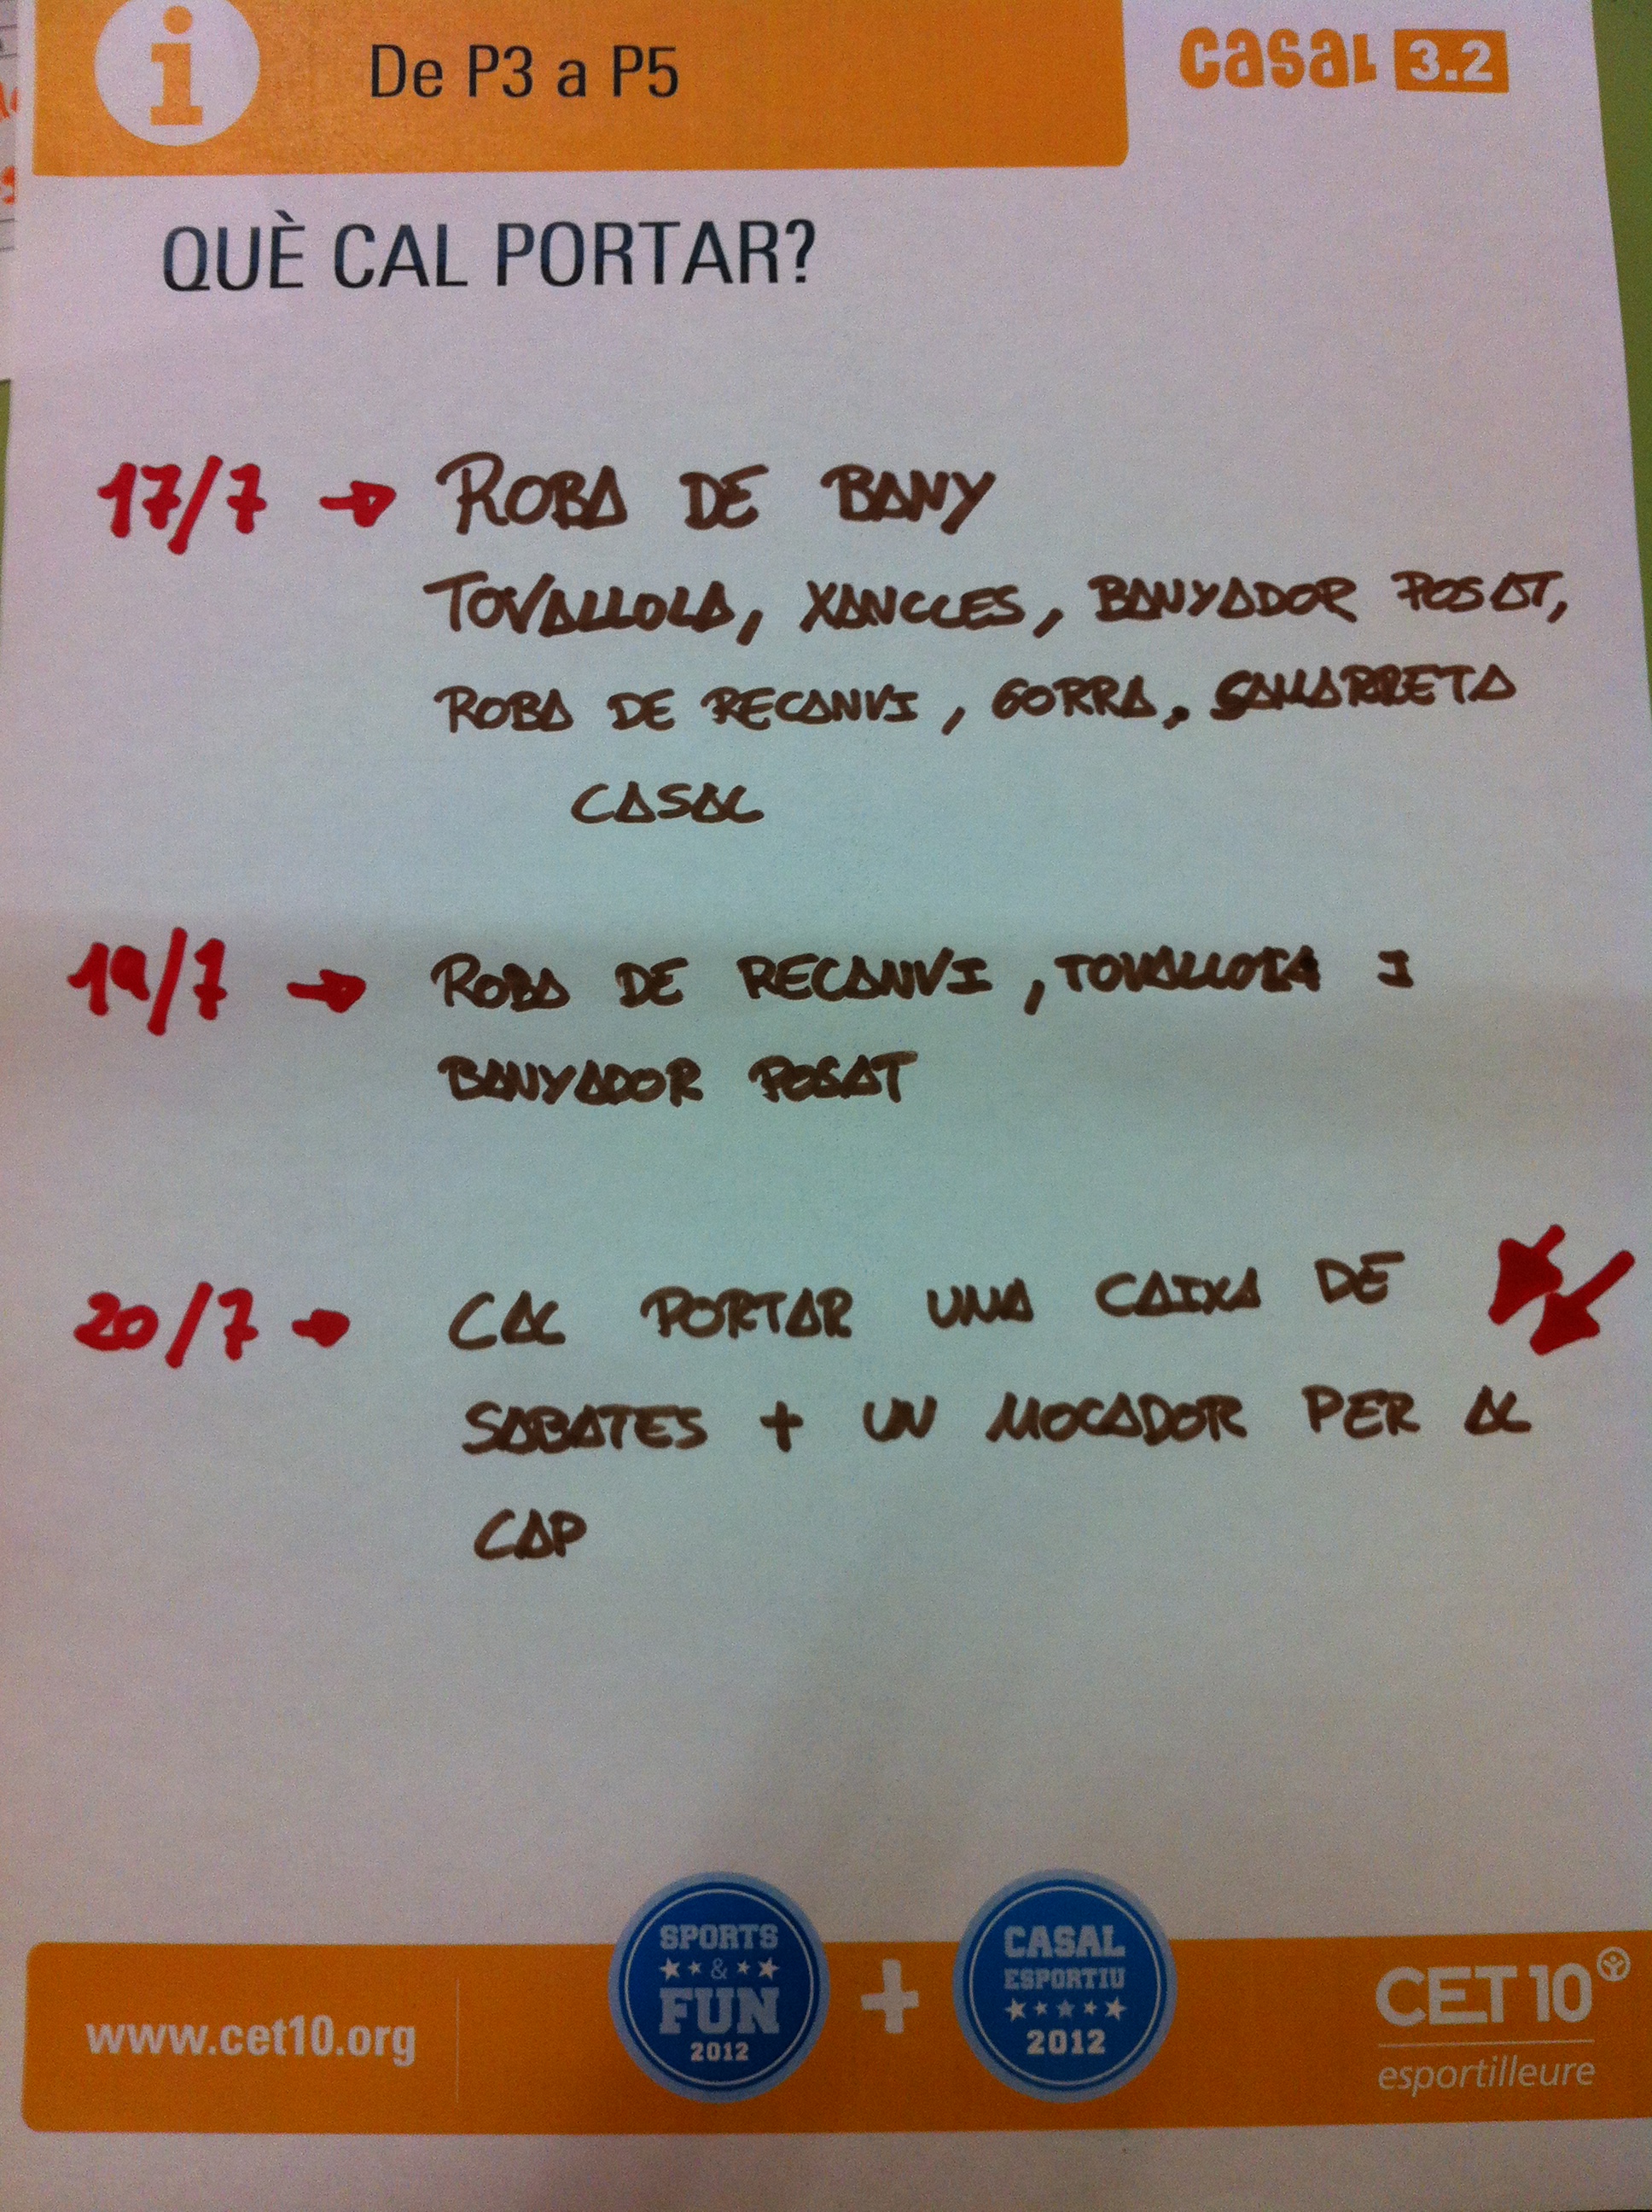 i
De P3 a P5
casal 3.2
QUÈ CAL PORTAR?
17/7 → ROBA DE BANY
TOVALLOLA, XANCLES, BANYADOR POSAT,
ROBA DE RECANVI, GORRA, SAMARRETA
CASAL
19/7 → ROBA DE RECANVI, TOVALLOLA I
BANYADOR POSAT
20/7 → CAL PORTAR UNA CAIXA DE
SABATES + UN MOCADOR PER AL
CAP
www.cet10.org
SPORTS
&
FUN
2012
+
CASAL
ESPORTIU
2012
CET10
esportilleure